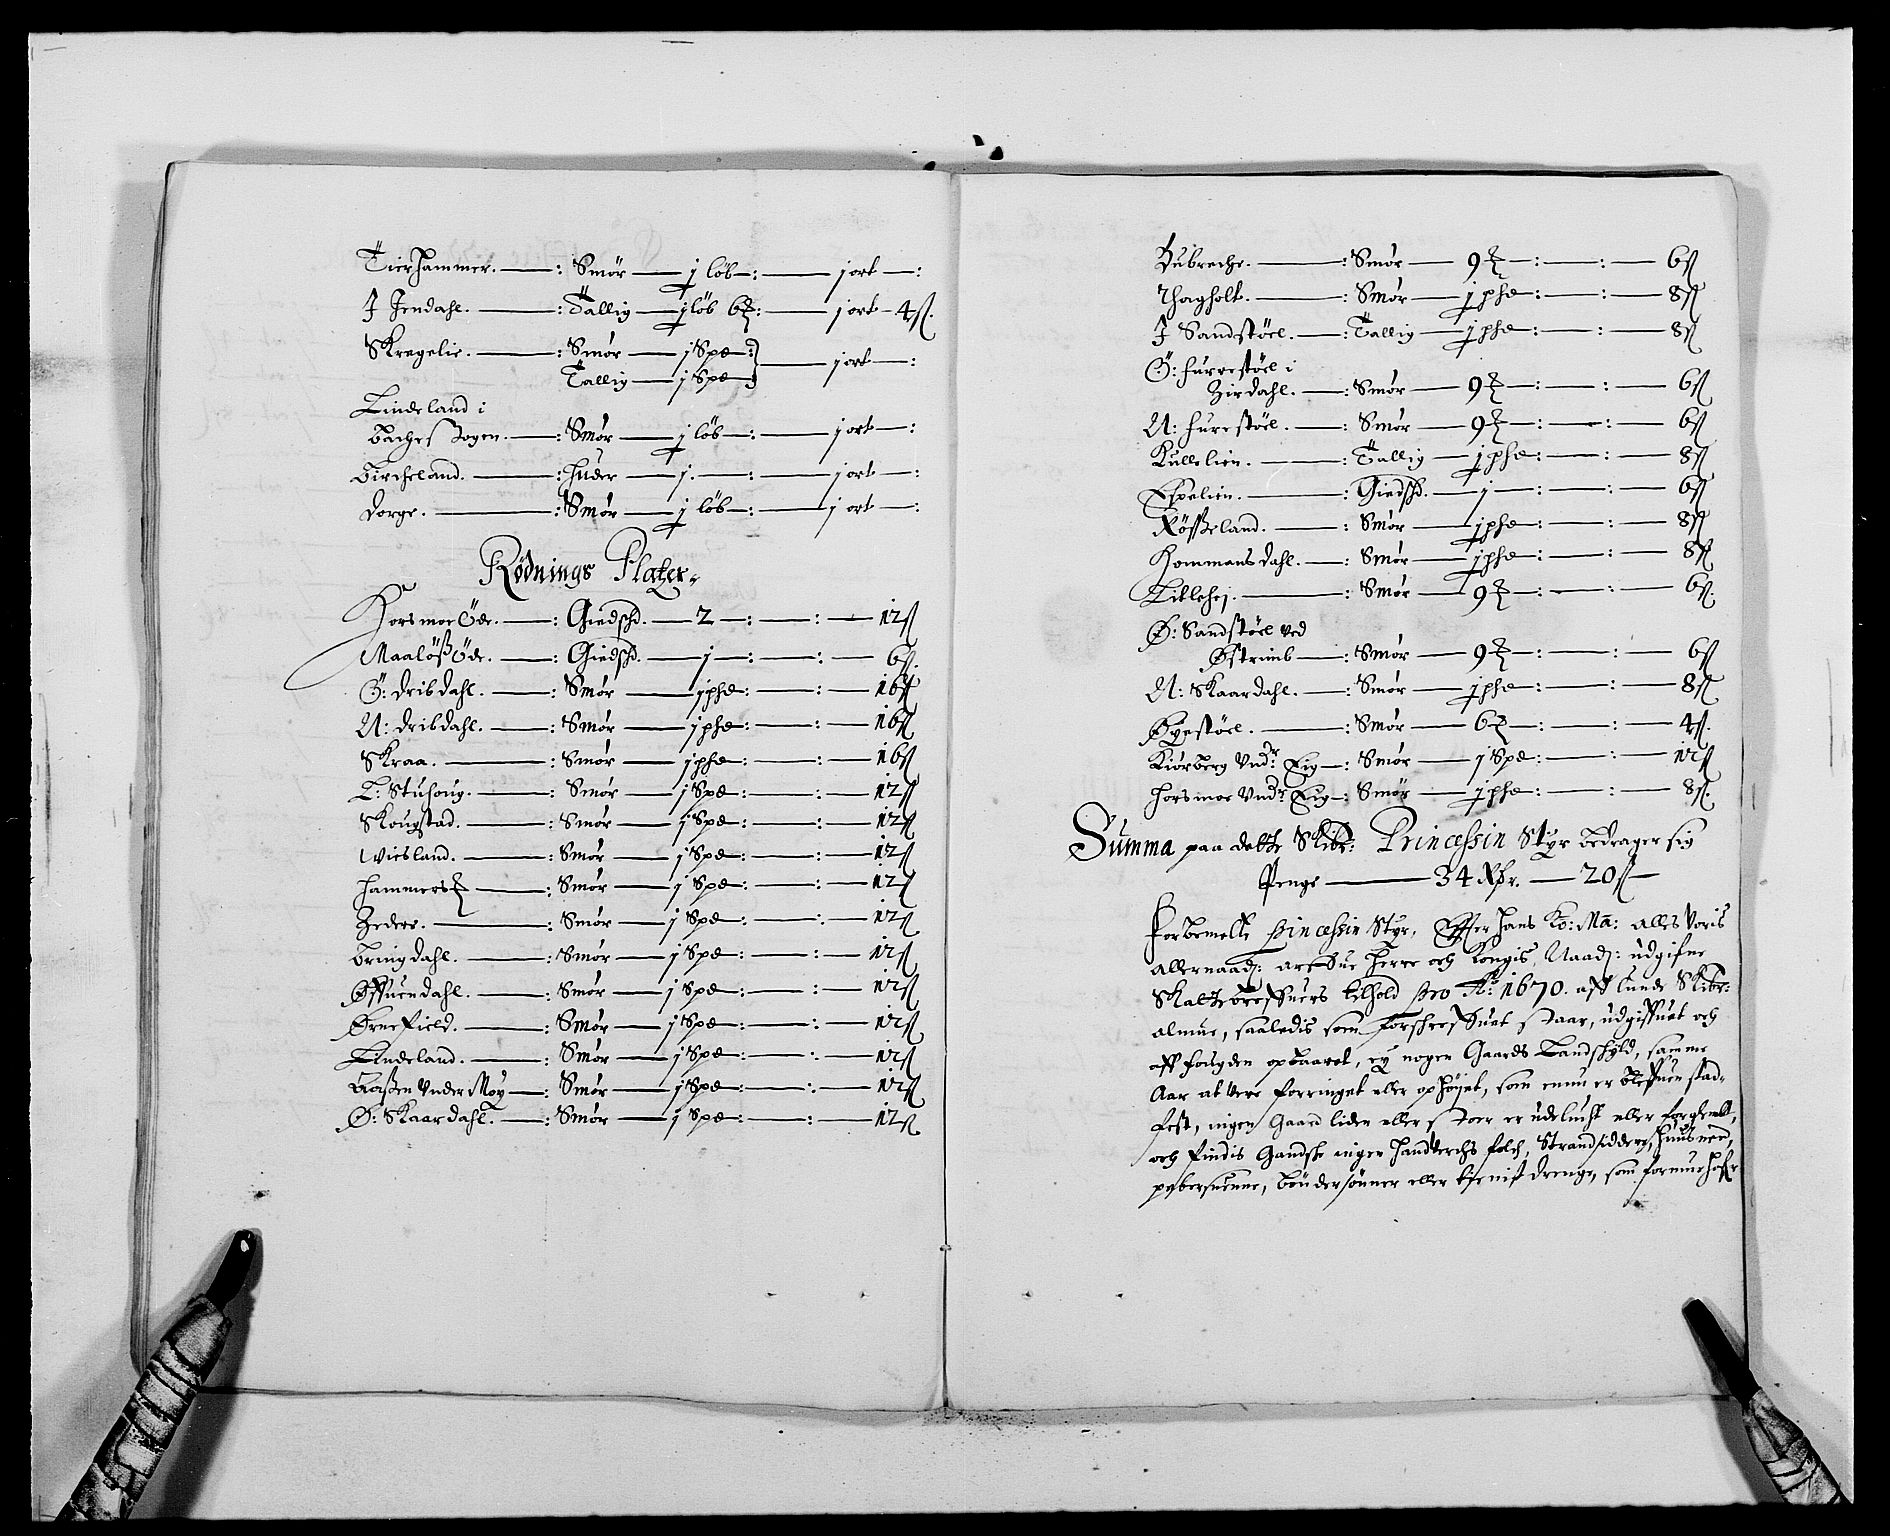 Tierhammer. — : Smör — j löb — : — j ort — :
J Jendahl. — : Tallig — j löb 6 ℔ : — j ort — 4 ß.
Skregelie. — : Smör — j Spd — :
Tallig — j Spd — j ort — :
Lindeland i
Bachesogen. — : Smör — j löb — : — j ort — :
Bircheland. — : huder — j. — : — j ort — :
Dorge. — : Smör — j löb — : — j ort — :
Rödnings Platzer
Horsmoe Öde. — : Giedschd. — 2 — : — : — 12 ß
Maalöß Öde. — : Giedschd. — j — : — : — 6 ß.
Ö: Dribdahl. — : Smör — j phd — : — : — 16 ß
N: Dribdahl. — : Smör — j phd — : — : — 16 ß
Skraa. — : Smör — j phd — : — : — 16 ß
L: Stuhoug. — : Smör — j Spd — : — : — 12 ß
Skougstad. — : Smör — j Spd — : — : — 12 ß
Wiesland. — : Smör — j Spd — : — : — 12 ß
Hammers — : Smör — j Spd — : — : — 12 ß
Zedere. — : Smör — j Spd — : — : — 12 ß
Bringdahl. — : Smör — j Spd — : — : — 12 ß
Øffuendahl. — : Smör — j Spd — : — : — 12 ß
Ørnefield. — : Smör — j Spd — : — : — 12 ß
Lindeland. — : Smör — j Spd — : — : — 12 ß
Aaßen Under Moy — : Smör — j Spd — : — : — 12 ß
Ø: Skaardahl. — : Smör — j Spd — : — : — 12 ß
Dubreche. — : Smör — 9 ℔ — : — : — 6 ß
Thagholt. — : Smör — j phd — : — : — 8 ß
J Sandstöel. — : Tallig — j phd — : — : — 8 ß
Ö: Hurrestöel i
Zirdahl. — : Smör — 9 ℔ — : — : — 6 ß
N: Hurestöel. — : Smör — 9 ℔ — : — : — 6 ß
Kullelien. — : Tallig — j phd — : — : — 8 ß
Espelien. — : Giedschd. — j — : — : — 6 ß
Rößeland. — : Smör — j phd — : — : — 8 ß
Hommansdahl. — : Smör — j phd — : — : — 8 ß
Litlehej. — : Smör — 9 ℔ — : — : — 6 ß.
Ø: Sandstöel ved
Østrimb — : Smör — 9 ℔ — : — : — 6 ß
N: Skaardahl. — : Smör — j phd — : — : — 8 ß
Øyestöel. — : Smör — 6 ℔ — : — : — 4 ß.
Kiörberg Undr Eig — : Smör — j Spd — : — : — 12 ß
Horsmoe Undr Eig — : Smör — j phd — : — : — 8 ß.
Summa paa dette Skibr: Princessin Styr bedrager sig
Penge — 34 Rdr. — 20 ß —
Forbemelte Princessin Styr, Effter hans Ko: Ma: alles Voris
allernaad: arfue Herre och Kongis, Naad: udgifne
Skattebreffuers tilhold pro Ao: 1670. aff lunde Skibr:
almue, saaledis som forschreffuet staar, udgiffuet och
aff fougden opbaaret, ey nogen Gaards Landschyld, samme
Aar at vere forringet eller ophöjet, som ennu er bleffuen stad-
fest, ingen Gaard liden eller stoer er udelucht eller forglemt,
och findis Gandske ingen handverchs folch, Strandsiddere, huusmend,
pebersuenne, bönder sönner eller tjeniste drenge, som formuehofr